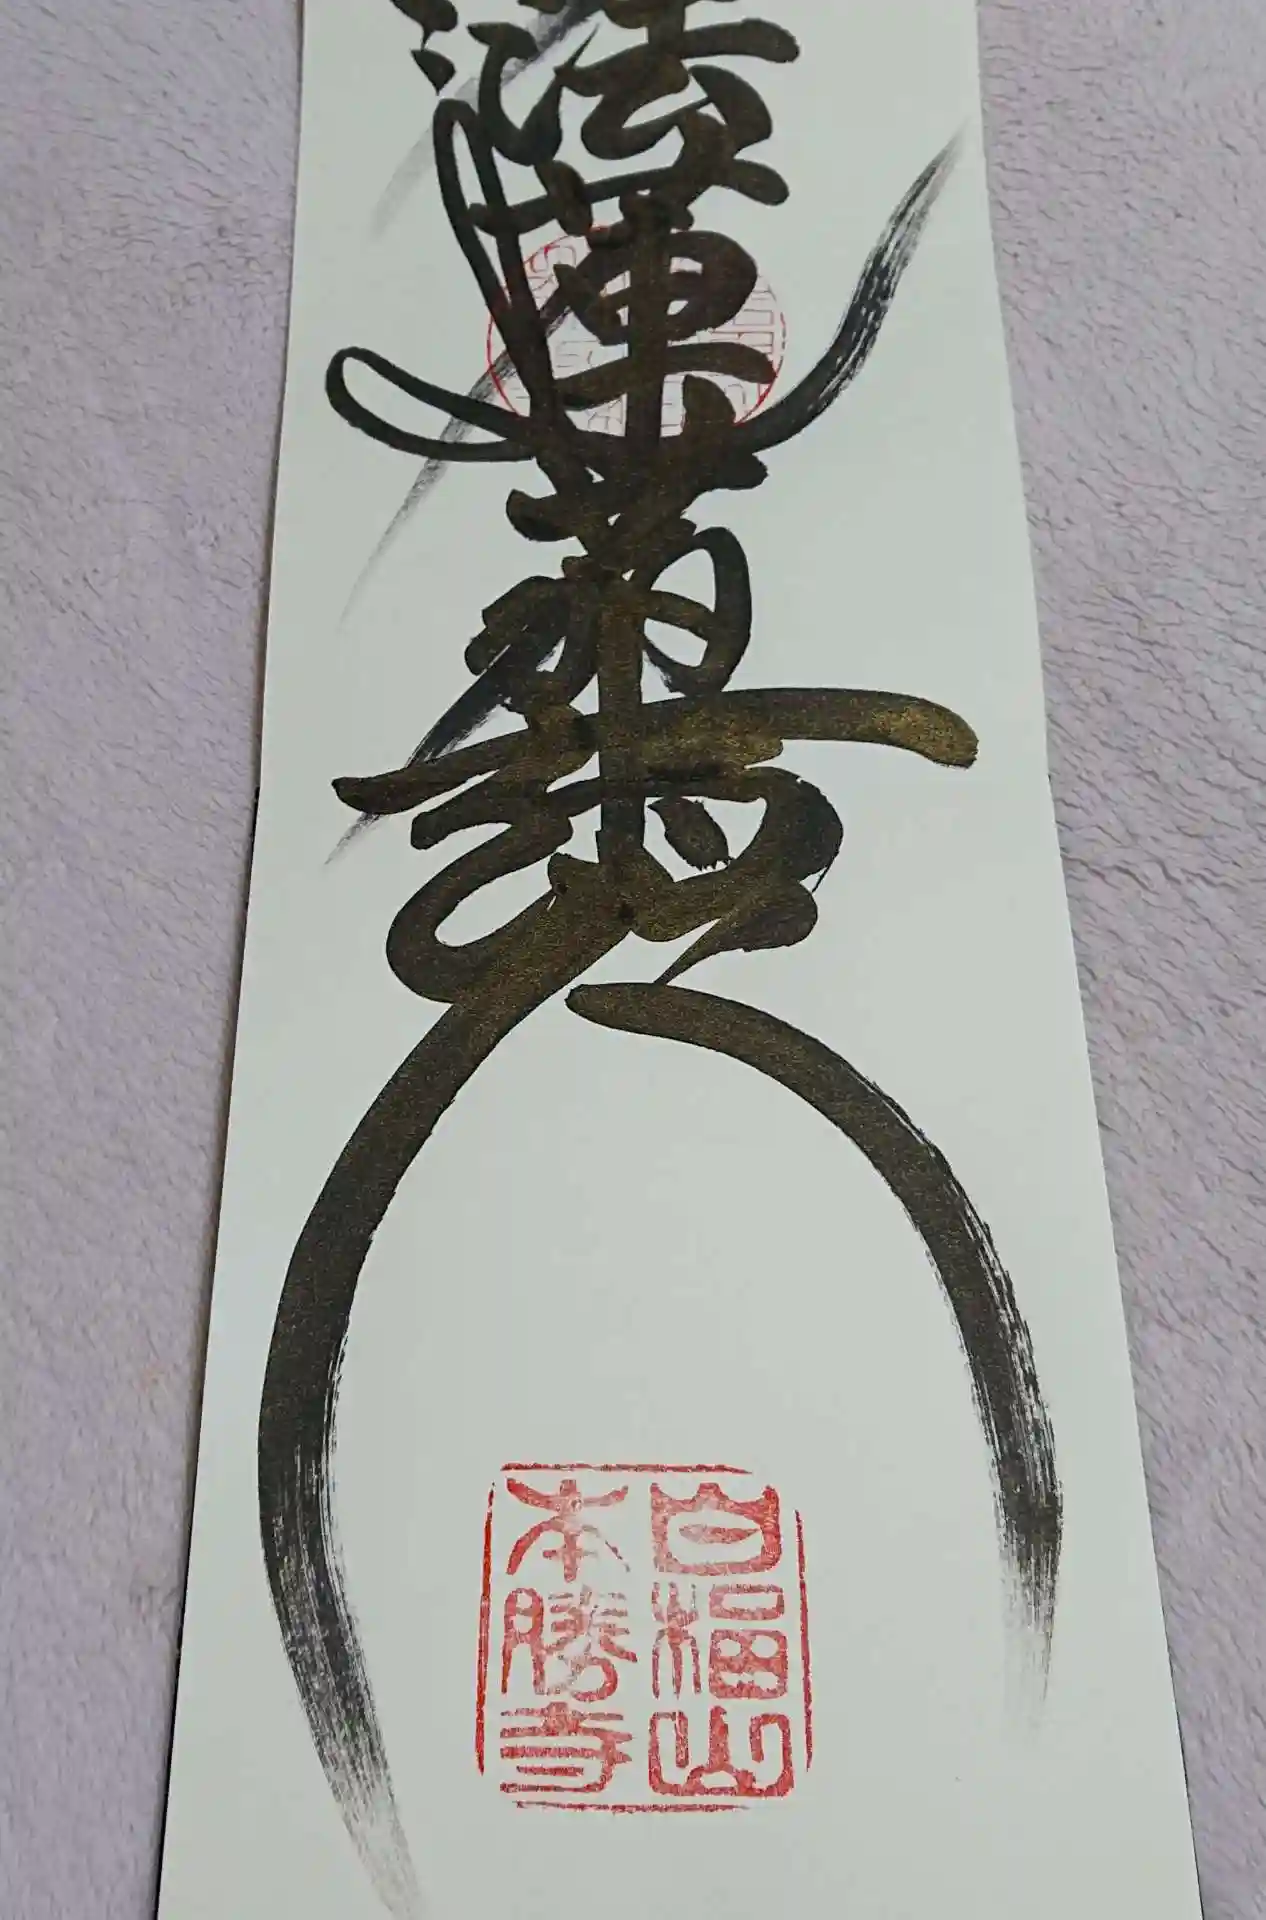 法蓮華経
白福山
本勝寺